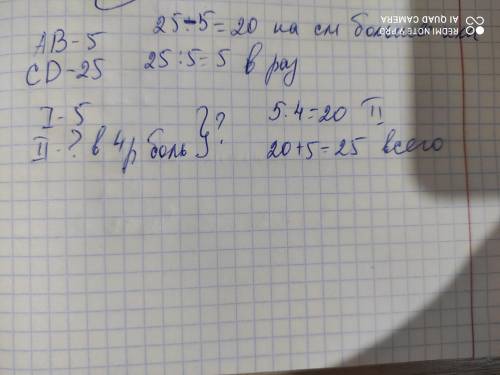 25-5=20 на см больше
AB-5
CD-25
25:5=5 в раз
I-5
II-? в 4р боль } ?
5·4=20 II
20+5=25 всего
REDMI NOTE 9 PRO
AI QUAD CAMERA